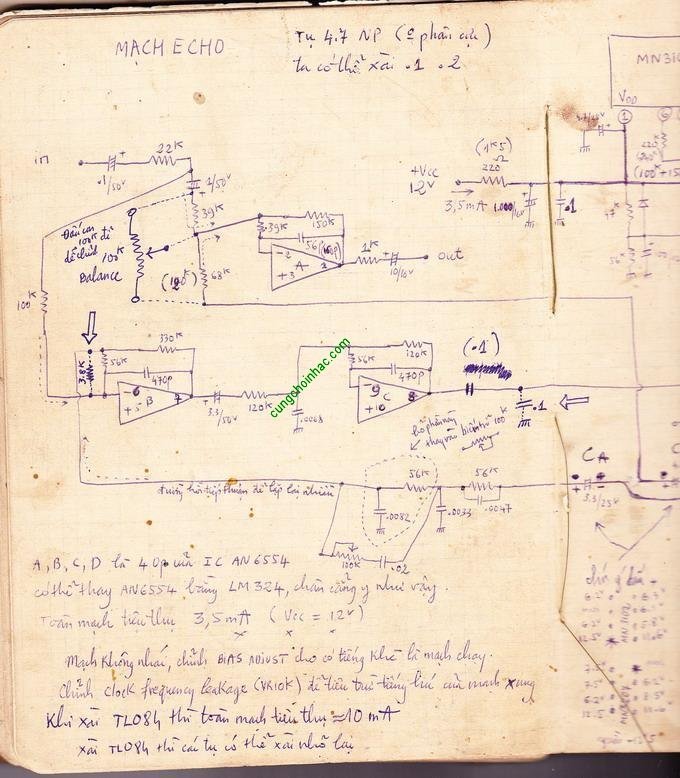 MẠCH ECHO
Tụ 4.7 NP (0 phân cực)
ta có thể xài .1 .2
MN310
VDD
1
6
in
22K
.1/50V
1/50V
39K
Balance
100K
(100K)
68K
39K
150K
56
-2
+3
A
1
1K
10/16V
out
(1K5)
220
+Vcc
12V
3,5mA
1.000/16V
.1
47K
56K
100K
3.8K
56K
330K
470p
-6
+5
B
7
3.3/50V
120K
.0068
cungchoinhac.com
56K
120K
470p
9
C
+10
8
(.1)
.1
bỏ phần này
thay vào biến trở 100K
đường hồi tiếp thuận để lặp lại nhiều
56K
56K
.0082
.0033
.0047
100K
.02
CA
3.3/25V
A, B, C, D là 4 Op của IC AN6554
có thể thay AN6554 bằng LM324, chân cẳng y như vậy.
Toàn mạch tiêu thụ 3,5mA (Vcc = 12V)
Mạch không nhái, chỉnh BIAS ADJUST cho có tiếng khè là mạch chạy.
Chỉnh Clock frequency leakage (VR10K) để tiêu trừ tiếng hú của mạch xung
Khi xài TL084 thì toàn mạch tiêu thụ ≈10 mA
xài TL084 thì các tụ có thể xài nhỏ lại